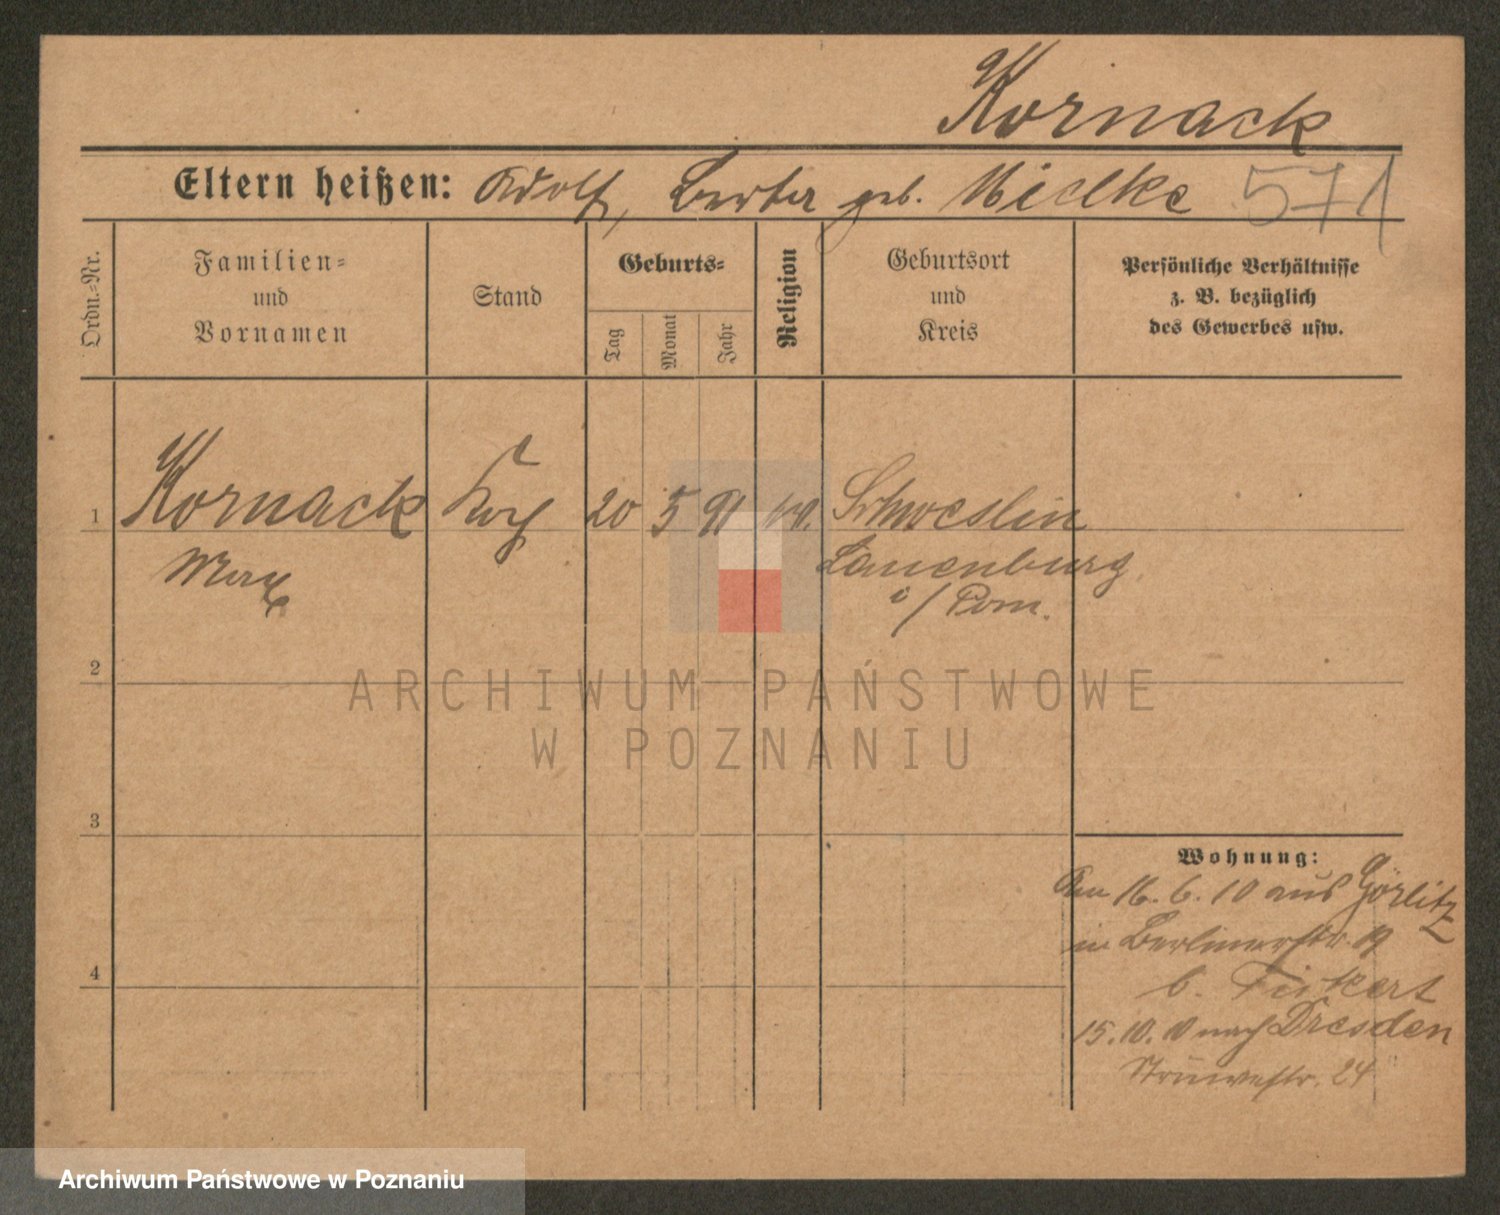 Kornack
Eltern heißen: Adolf, Berta geb. Mielke 571
Ordn.-Nr.
Familien-
und
Vornamen
Stand
Geburts-
Tag
Monat
Jahr
Religion
Geburtsort
und
Kreis
Persönliche Verhältnisse
z. B. bezüglich
des Gewerbes usw.
1 Kornack Koch 20 5 91 ev. Schweslin
Max Lauenburg
i/Pom.
2
ARCHIWUM PAŃSTWOWE
W POZNANIU
3
Wohnung:
Am 16.6.10 aus Görlitz
in Berlinerstr. 19
4
b. Fickert
15.10.10 nach Dresden
Struvestr. 24
Archiwum Państwowe w Poznaniu